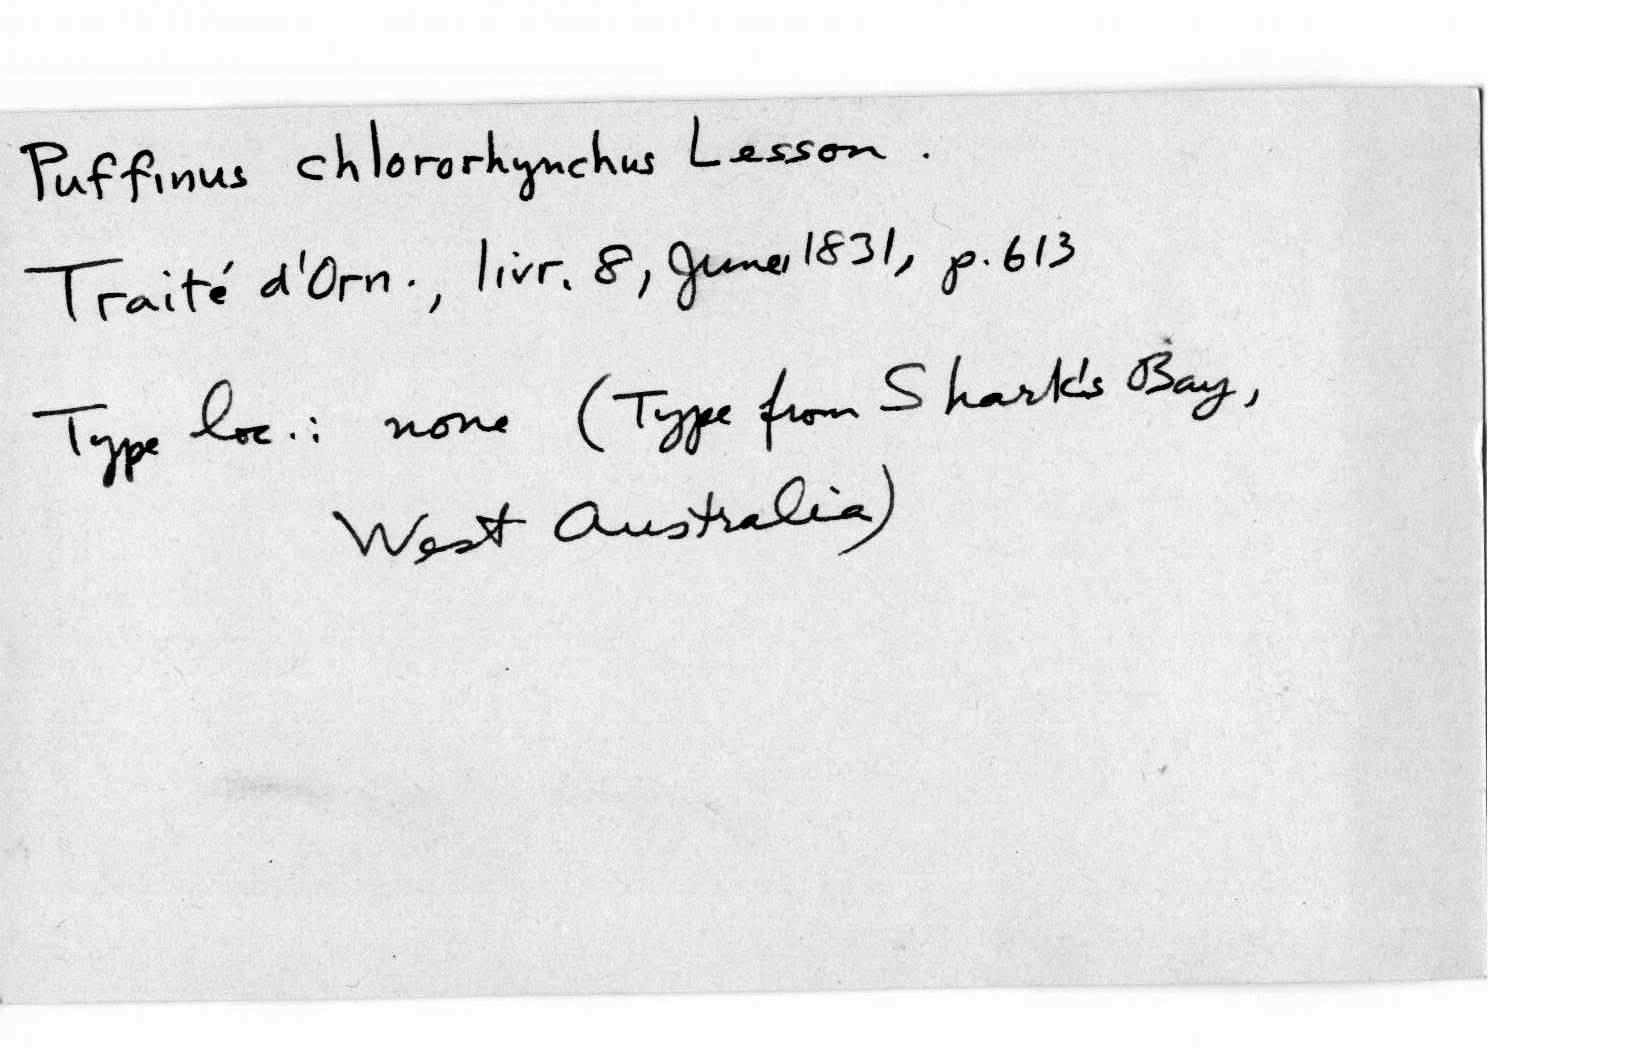 Puffinus chlororhynchus Lesson.
Traité d'Orn., livr. 8, June, 1831, p. 613
Type loc.: none (Type from Shark's Bay,
West Australia)